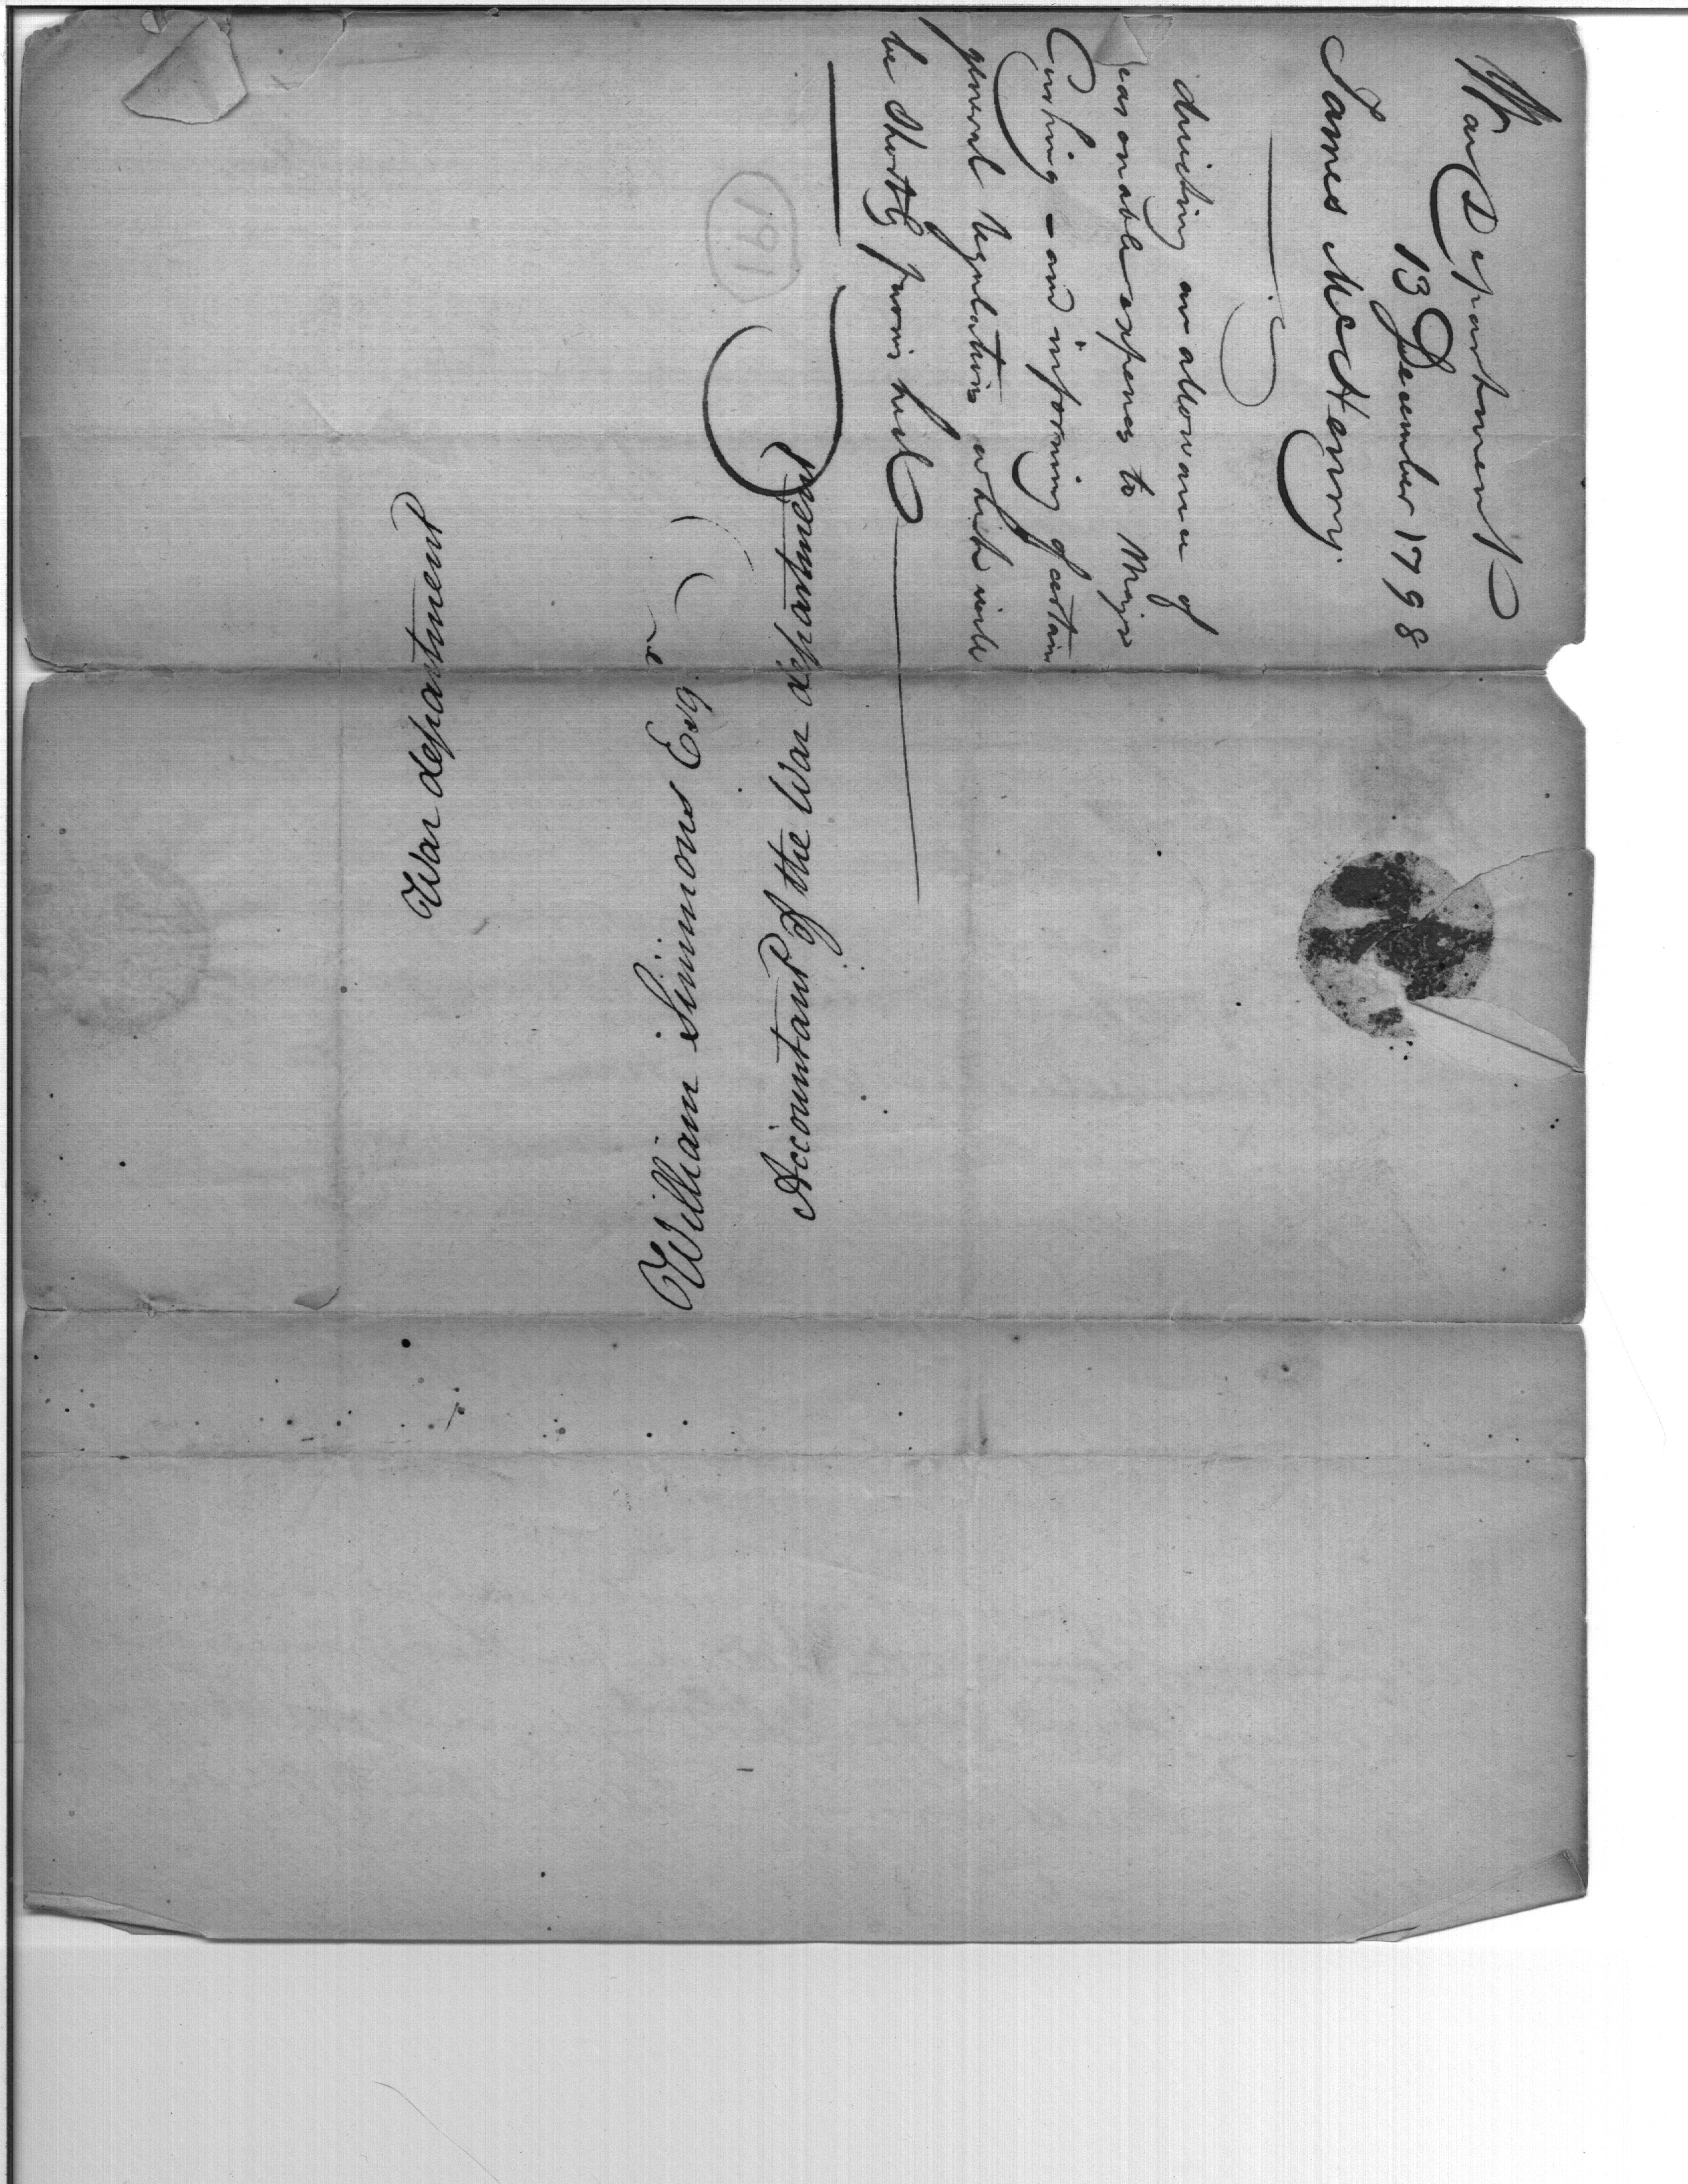 War Department
13 December 1798
James McHenry
directing an allowance of
reasonable expences to Major
Cushing - and informing of certain
general regulations which will
be shortly furnished
War department
William Simmons Esqr.
Accountant of the War department